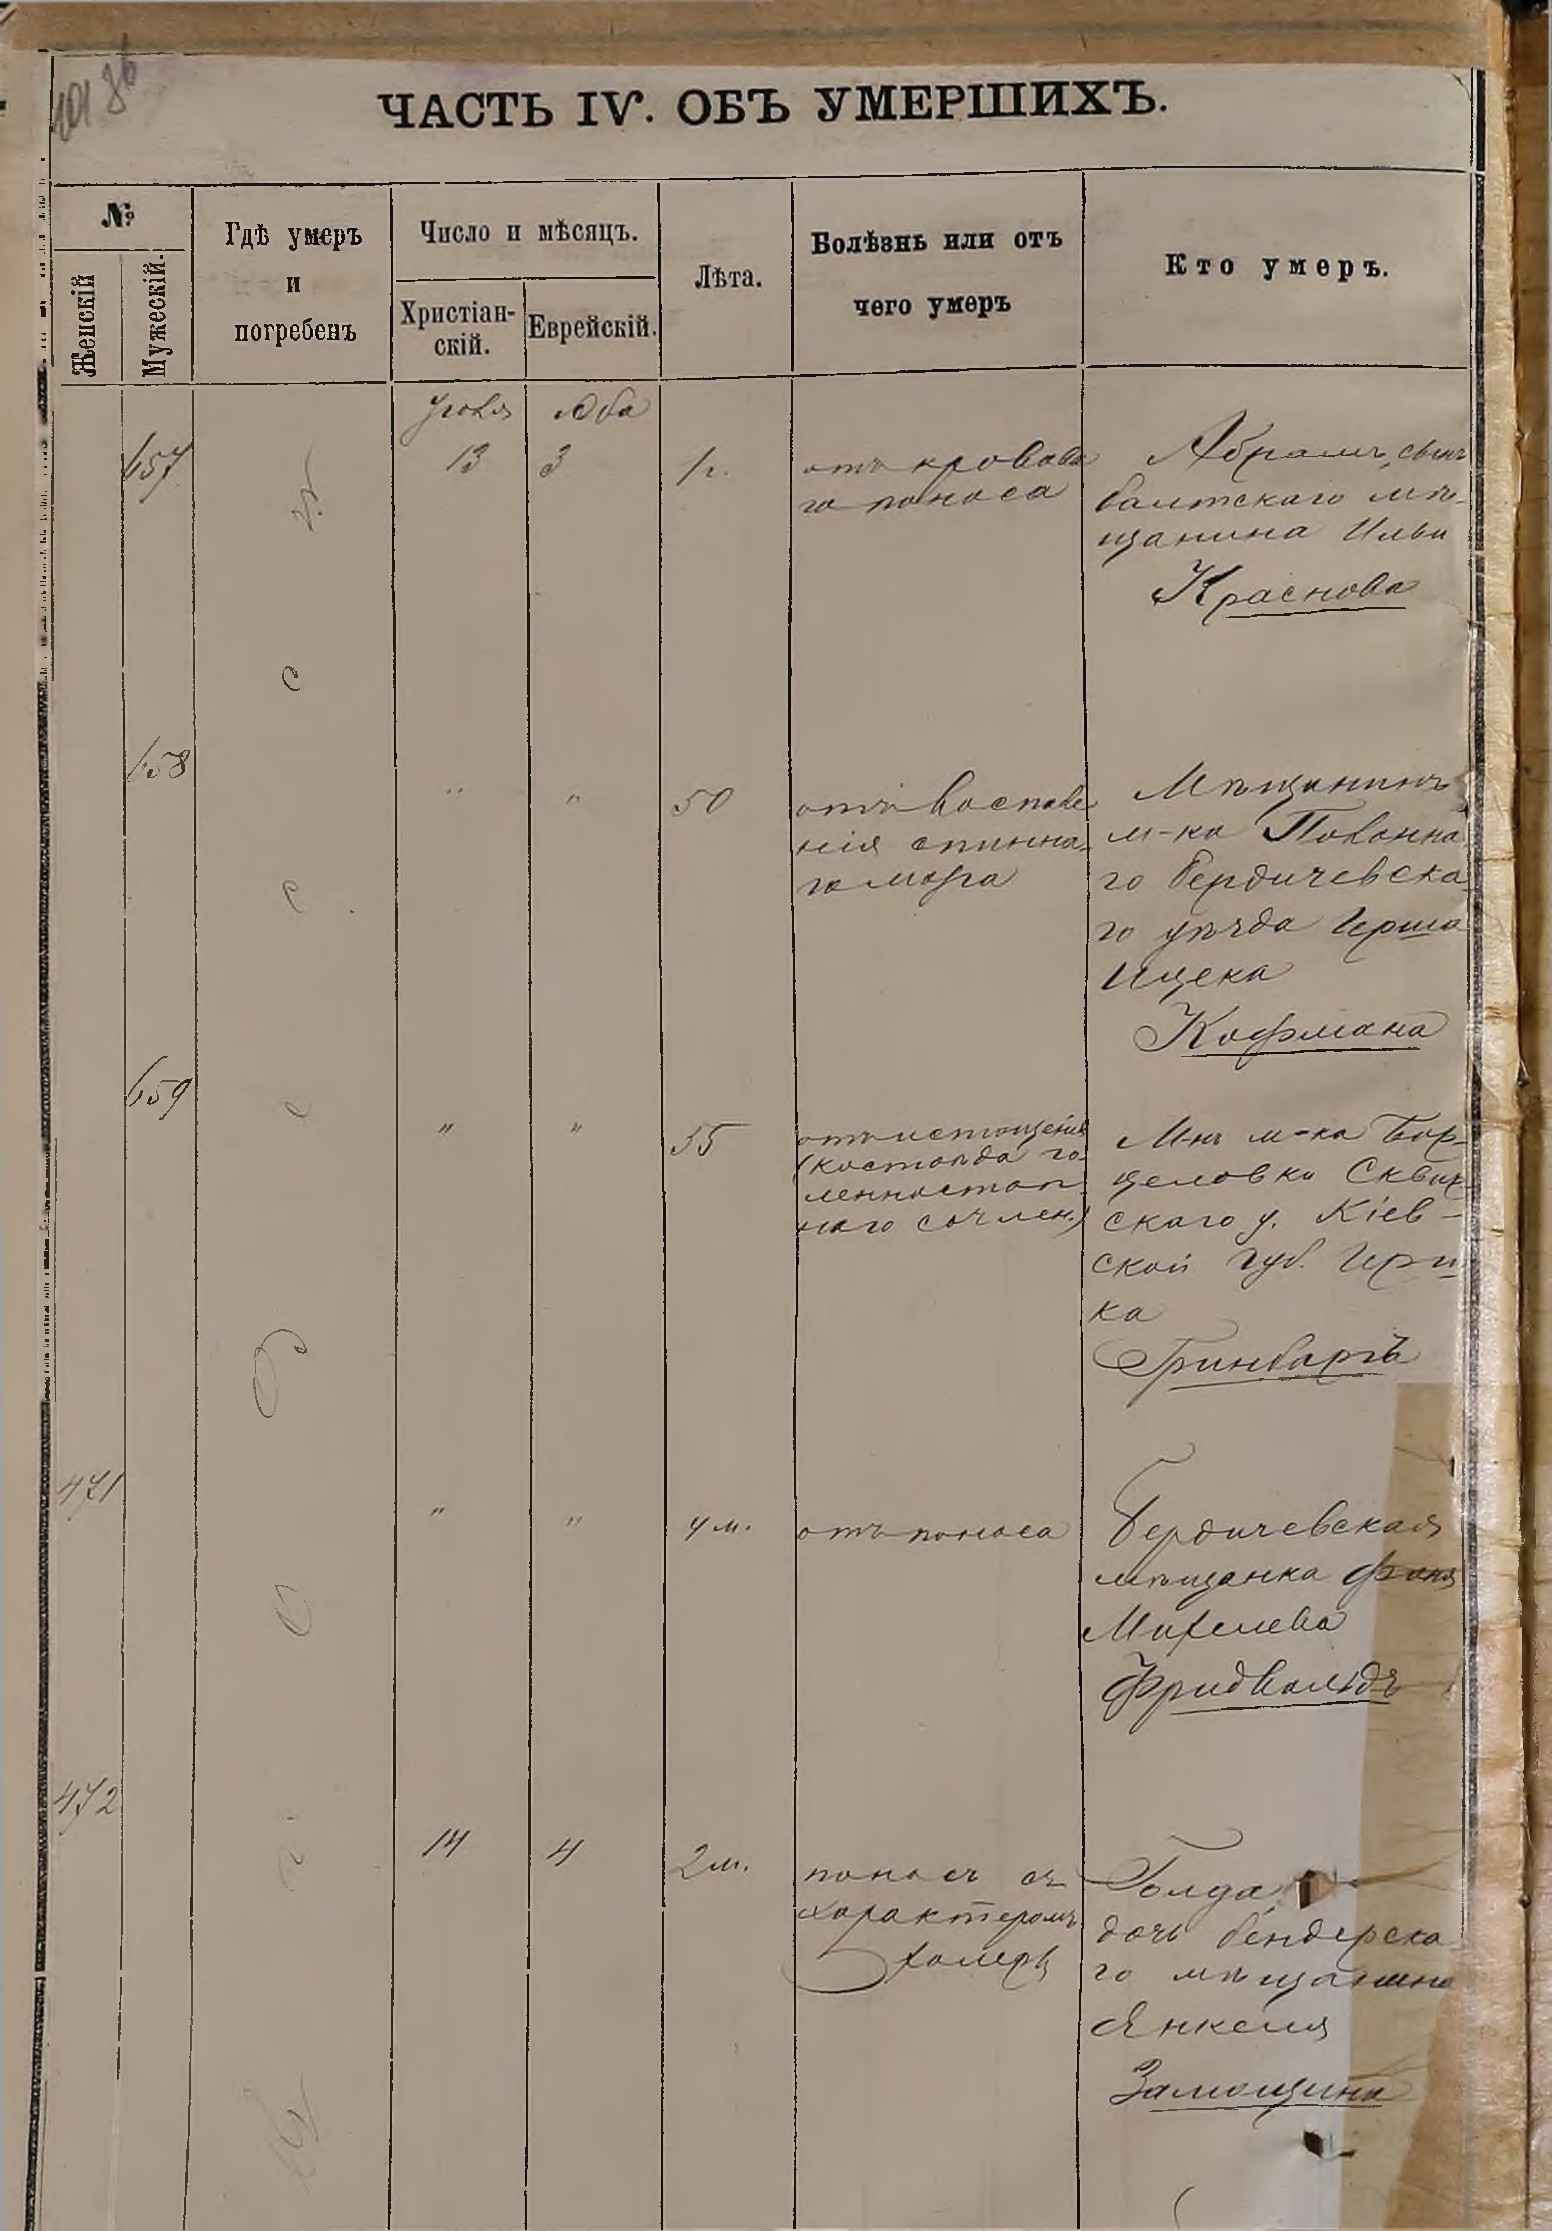 ЧАСТЬ IV. ОБЪ УМЕРШИХЪ.
№
Женскій
Мужескій.
Гдѣ умеръ
и
погребенъ
Число и мѣсяцъ.
Христіан-
скій.
Еврейскій.
Лѣта.
Болѣзнь или отъ
чего умеръ
Кто умеръ.
Іюля
Аба
657
13
3
1 г.
отъ кровава
го поноса
Абрамъ, сынъ
балтскаго мѣ-
щанина Ильи
Краснова
658
"
"
50
отъ воспале
нія спинна-
го мозга
Мѣщанинъ
м-ка
го Бердичевска
го уѣзда Герша
Ицека
Кофмана
659
"
"
55
отъ истощенія
(костоѣда го-
ленностоп-
наго сочлен.)
М-нъ м-ка Бор-
щаговки Сквир-
скаго у. Кіев-
ской губ. Герш-
ка
Гринбаргъ
471
"
"
4 м.
отъ поноса
Бердичевская
мѣщанка Феня
Михелева
Фридвальдъ
472
14
4
2 м.
поносъ съ
характеромъ
холеры
Голда
дочь бендерска
го мѣщанина
Янкеля
Замощина